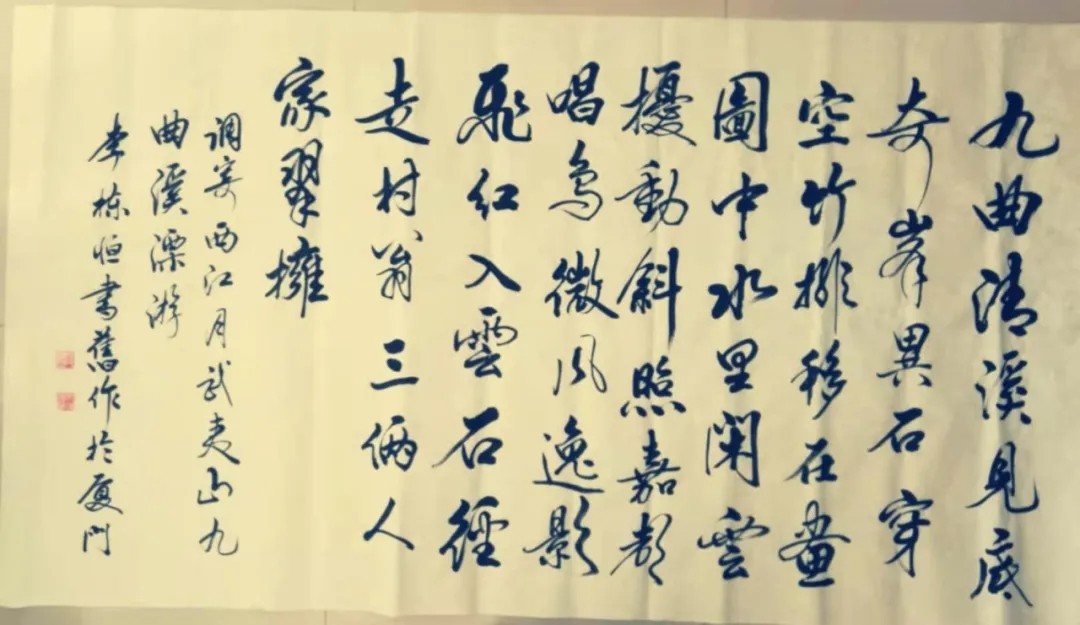 九曲清溪見底
奇峯異石穿
空竹排移在畫
圖中水里閑雲
擾動斜照嘉
唱鳥微風逸影
飛紅入雲石徑
走村翁三倆人
家翠擁
调寄西江月武夷山九
曲溪漂游
李栋恒書舊作於厦门